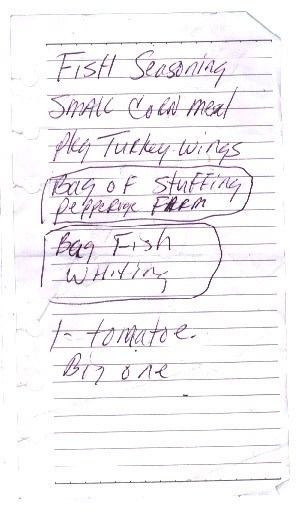 Fish Seasoning
Small Corn meal
pkg Turkey wings
Bag of stuffing
Pepperige Farm
Bag Fish
Whiting
1- tomatoe.
Big one